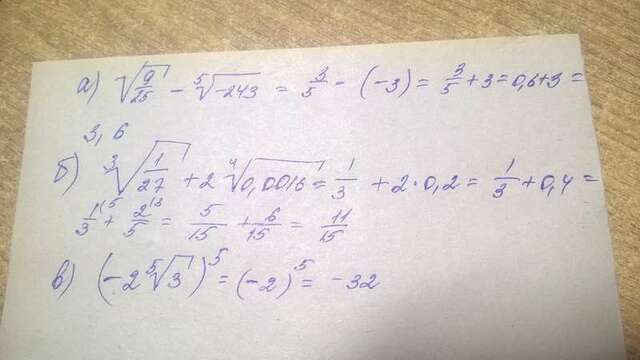 а) √(9/25) - ⁵√(-243) = 3/5 - (-3) = 3/5 + 3 = 0,6 + 3 =
3,6
б) ³√(1/27) + 2 ⁴√(0,0016) = 1/3 + 2·0,2 = 1/3 + 0,4 =
1/3⁽⁵ + 2/5⁽³ = 5/15 + 6/15 = 11/15
в) (-2 ⁵√3)⁵ = (-2)⁵ = -32